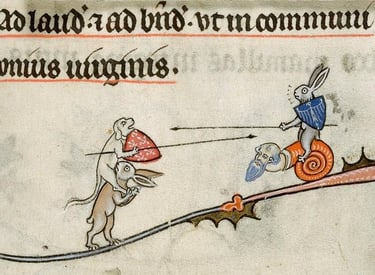 Ad laud̄. ⁊ ad bn̄d̄. vt in communi
vnius uirginis.